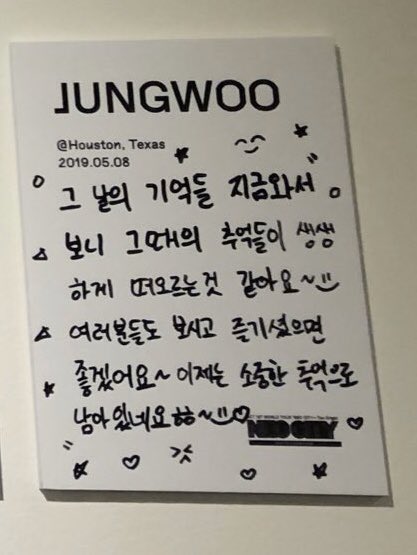 JUNGWOO
@Houston, Texas
2019.05.08
그 날의 기억들 지금와서
보니 그때의 추억들이 생생
하게 떠오르는것 같아요~
여러분들도 보시고 즐기셨으면
좋겠어요~ 이제는 소중한 추억으로
남아있네요ㅎㅎ~
NEO CITY